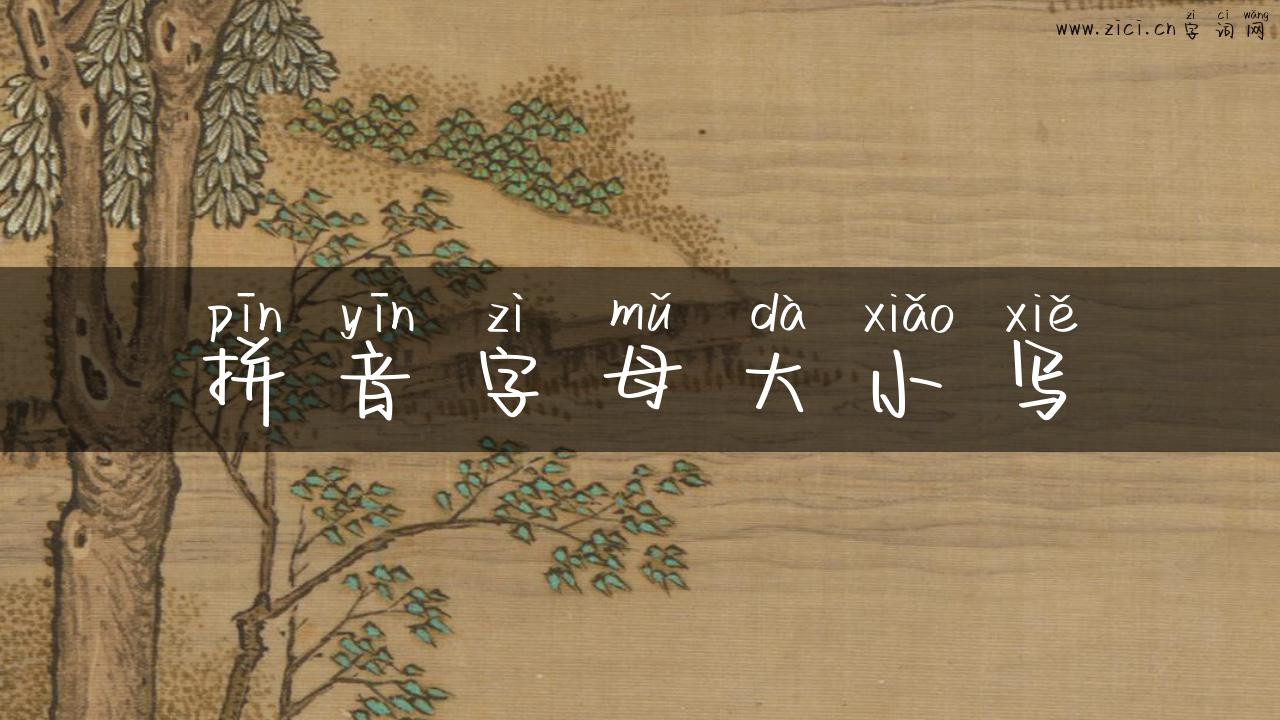 zì cí wǎng
www.zici.cn字词网
pīn yīn zì mǔ dà xiǎo xiě
拼音字母大小写